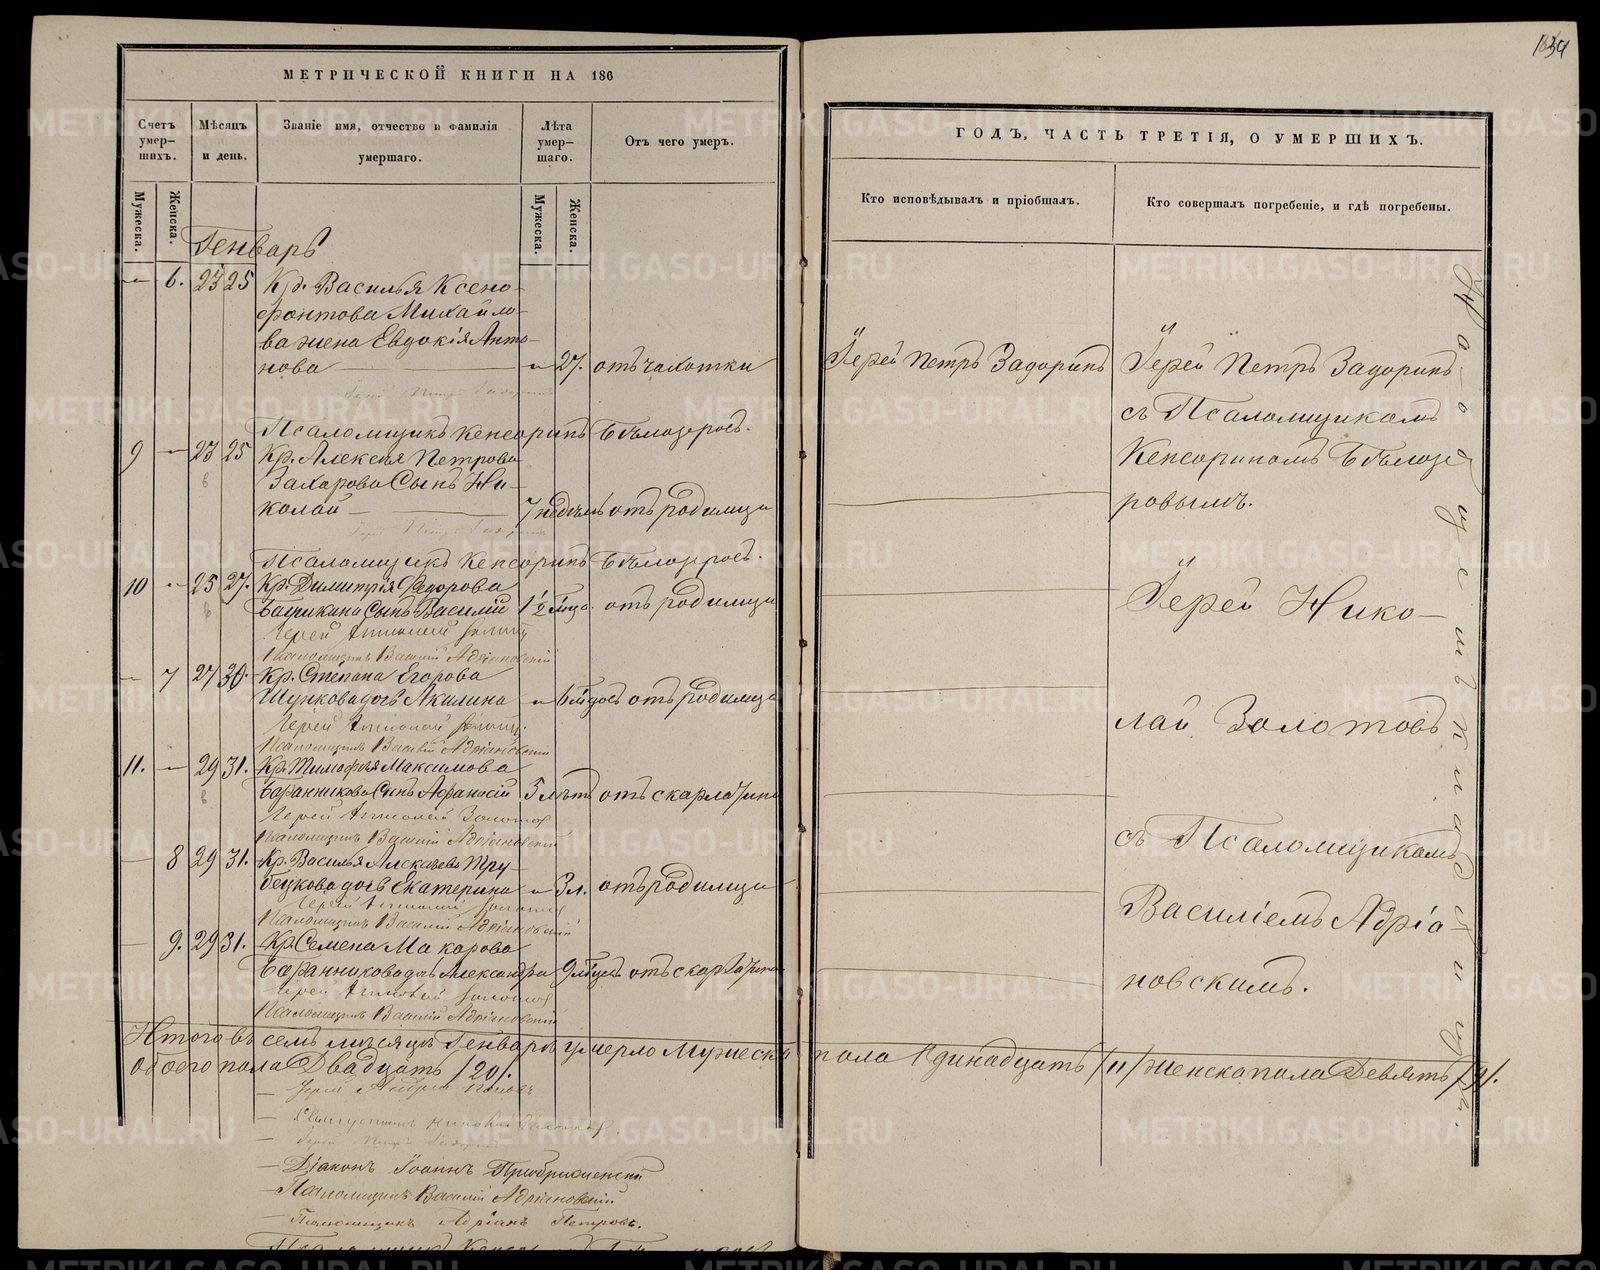 МЕТРИЧЕСКОЙ КНИГИ НА 186
Счетъ умер-шихъ.
Мѣсяцъ и день.
Званіе имя, отчество и фамилія умершаго.
Лѣта умер-шаго.
Отъ чего умеръ.
Мужеска.
Женска.
Мужеска.
Женска.
Генварь
— 6. 23 25 Кр. Василья Ксено-
фонтова Михайло-
ва жена Евдокія Анто-
нова — „ 27. отъ чахотки
Псаломщикъ Кенсоринъ Бѣлозеровъ.
9 — 23 25 Кр. Алексѣя Петрова
Захарова Сынъ Ни-
колай — 7 недѣль отъ родимца
Псаломщикъ Кенсоринъ Бѣлозеровъ.
10 — 25 27. Кр. Димитрія Ѳедорова
Сынъ Василій 1½ мѣсца. отъ родимца
Іерей
Псаломщикъ Василій Адріановскій
— 7 27 30. Кр. Степана Егорова
дочь Акилина „ отъ родимца
Іерей
Псаломщикъ Василій Адріановскій
11. — 29 31. Кр. Тимофея Максимова
Баранникова Сынъ Афанасій 5 лѣтъ отъ скарлатины
Іерей Золотовъ
Псаломщикъ Василій Адріановскій
— 8 29 31. Кр. Василья Алексѣева Тру-
бецкова дочь Екатерина „ 3 л. отъ родимца
Іерей
Псаломщикъ Василій Адріановскій
— 9. 29 31. Кр. Семена Макарова
Баранникова дочь Александра 9 мѣсц. отъ скарлатины
Іерей
Псаломщикъ Василій Адріановскій
Итого въ семъ мѣсяцѣ Генварѣ умерло Мужеска пола Одинадцать /11/ женска пола Девять /9/.
обоего пола Двадцать /20/.
— Іерей Андрей Поповъ
— Діаконъ Іоаннъ Преображенскій
— Псаломщикъ Василій Адріановскій
— Псаломщикъ Адріанъ Петровъ.
134
ГОДЪ, ЧАСТЬ ТРЕТІЯ, О УМЕРШИХЪ.
Кто исповѣдывалъ и пріобщалъ.
Кто совершалъ погребеніе, и гдѣ погребены.
Іерей Петръ Задоринъ
Іерей Петръ Задоринъ
съ Псаломщикомъ
Кенсориномъ Бѣлозе
ровымъ.
Іерей Нико-
лай Золотовъ
съ Псаломщикомъ
Василіемъ Адріа
новскимъ.
METRIKI.GASO-URAL.RU